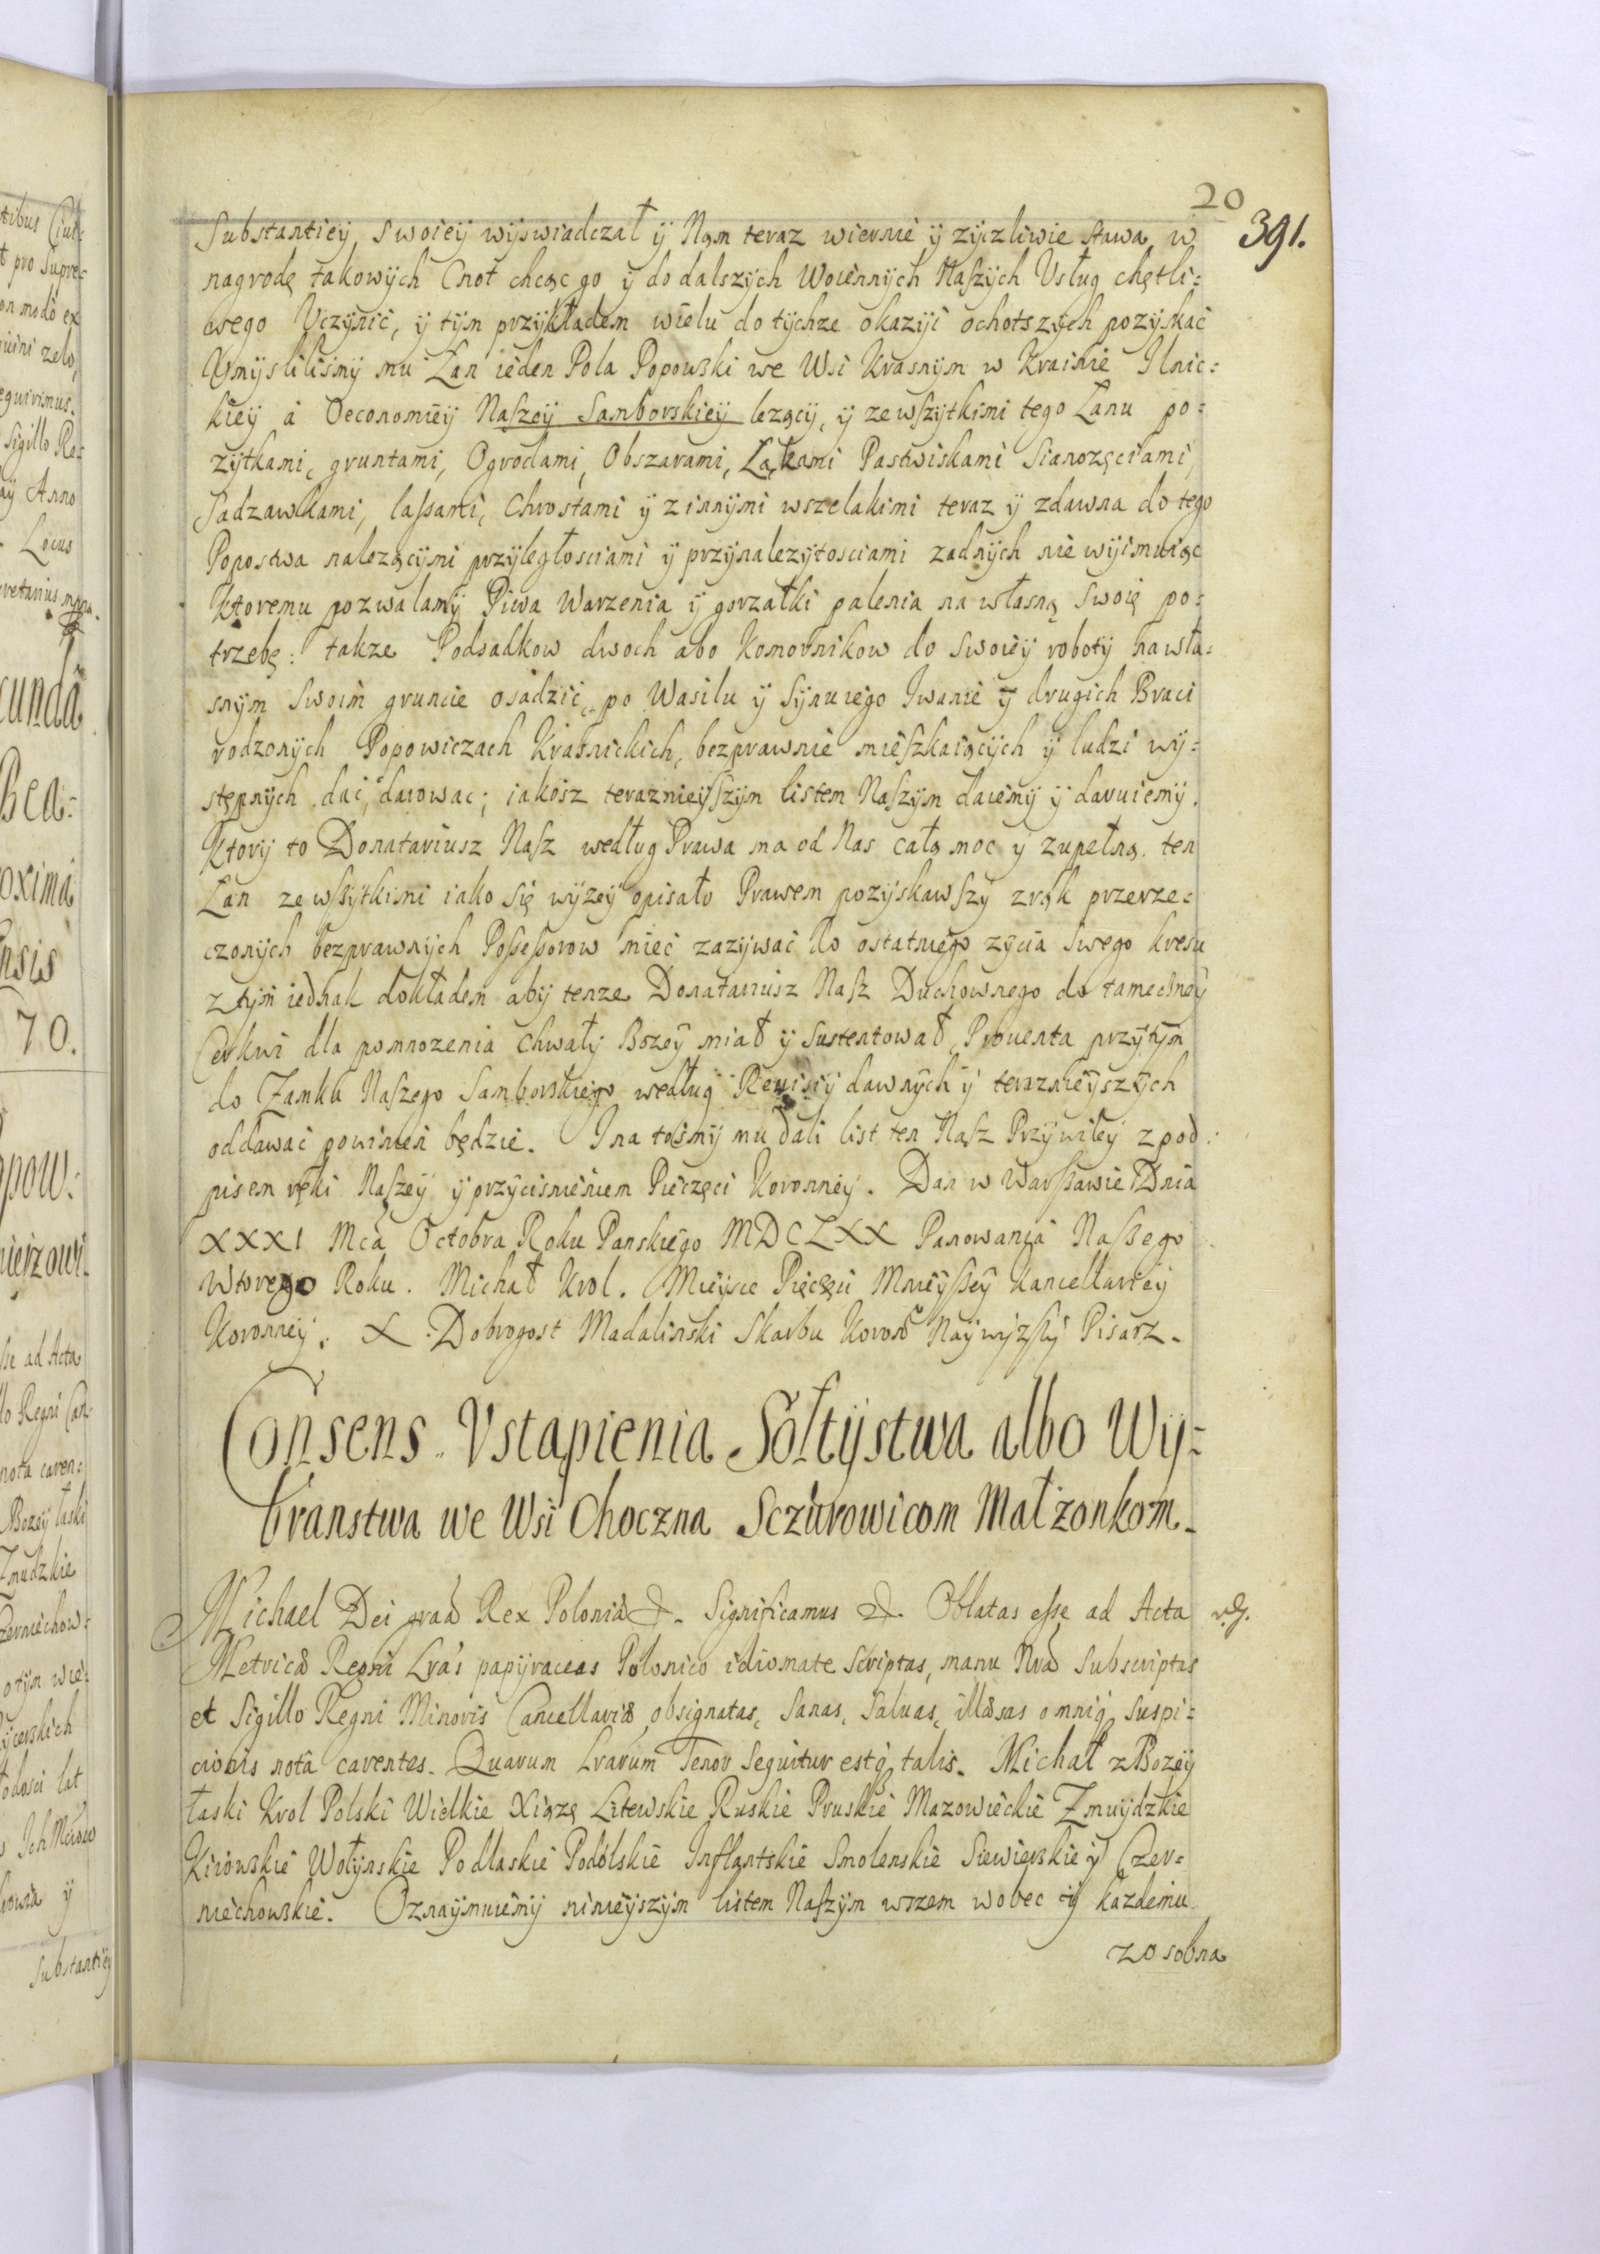 20
391.
Substantiey swoiey wyswiadczał y Nam teraz wiernie y zyczliwie stawa, w
nagrodę takowych Cnot chcąc go y do dalszych Woiennych Naszych Usług chętli=
wego Uczynić, y tym przykładem wielu do tychze okazyi ochotszych pozyskać
Umyslilismy mu Łan ieden Pola Popowski we Wsi Krasnym w Krainie Ilnic=
kiey á Oeconomiey Naszey Samborskiey lezący, y ze wszytkimi tego Łanu po=
zytkami, gruntami, Ogrodami, Obszarami, Łąkami Pastwiskami Sianozęciami,
Sadzawkami, lassami, Chrostami y z innymi wszelakimi teraz y zdawna do tego
Popostwa nalezącymi przyległosciami y przynalezytosciami zadnych nie wyimuiąc
Ktoremu pozwalamy Piwa Warzenia y gorzałki palenia na własną swoię po=
trzebę: takze Podsadkow dwoch abo Komornikow do swoiey roboty na wła=
snym swoim gruncie osadzić, po Wasilu y Synu iego Iwanie y drugich Braci
rodzonych Popowiczach Krasnickich, bezprawnie mieszkaiących y ludzi wy=
stępnych dać, darować; iakosz teraznieyszym listem Naszym daiemy y daruiemy.
Ktory to Donatariusz Nasz według Prawa ma od Nas całą moc y zupełną ten
Łan ze wszytkimi iako się wyzey opisało Prawem pozyskawszy z rąk przerze=
czonych bezprawnych Possessorow mieć zazywać do ostatniego zycia swego kresu
z tym iednak dokładem aby tenze Donatariusz Nasz Duchownego do tameczney
Cerkwi dla pomnozenia chwały Bozey miał y sustentował, Prouenta przytym
do Zamku Naszego Samborskiego według Rewisiy dawnych y teraznieyszych
oddawać powinien będzie. I na tosmy mu dali list ten Nasz Przywiley z pod=
pisem ręki Naszey y przycisnieniem Pieczęci Koronney. Dan w Warszawie Dnia
XXXI Mca Octobra Roku Panskiego MDCLXX Panowania Naszego
Wtorego Roku. Michał Krol. Mieysce Pieczęci Mnieyszey Kancellariey
Koronney. X. Dobrogost Madalinski Skarbu Koron Naywyzszy Pisarz.
Consens Vstąpienia Sołtystwa albo Wy=
branstwa we Wsi Choczna Sczurowicom Małzonkom.
Michael Dei graa Rex Poloniæ &. Significamus &. Oblatas esse ad Acta
Metricæ Regni Lrás papyraceas Polonico idiomate scriptas, manu Nrâ subscriptas
et Sigillo Regni Minoris Cancellariæ obsignatas, sanas, saluas, illæsas omniq suspi=
cionis notâ carentes. Quarum Lrarum Tenor sequitur estq talis. Michał z Bozey
łaski Krol Polski Wielkie Xiązę Litewskie Ruskie Pruskie Mazowieckie Zmuydzkie
Kiiowskie Wołynskie Podlaskie Podolskie Inflantskie Smolenskie Siewierskie y Czer=
niechowskie. Oznaymuiemy ninieyszym listem Naszym wszem wobec y kazdemu
zosobna